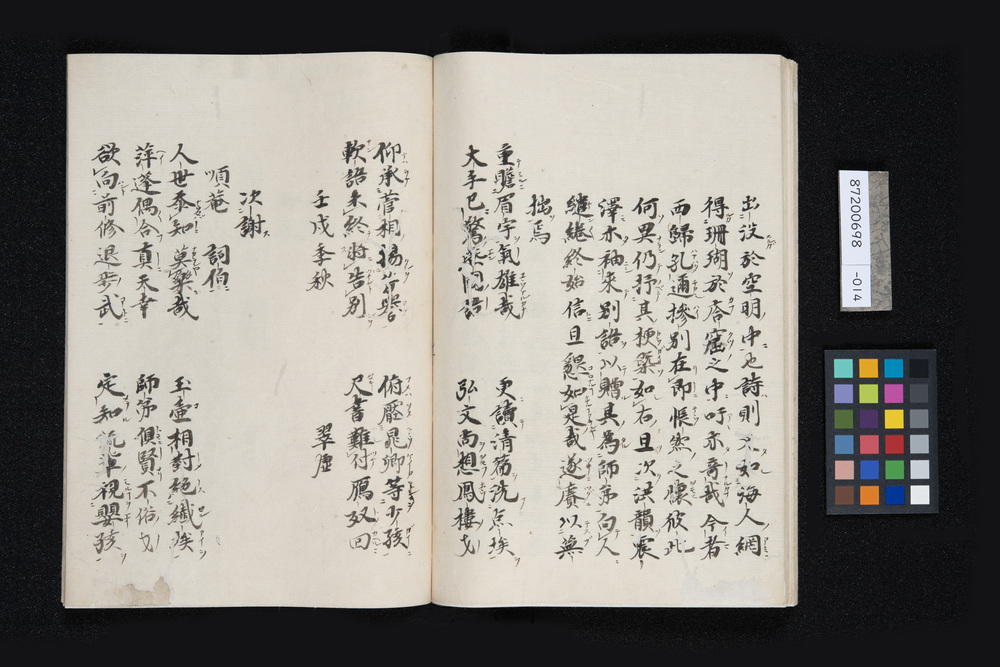 出没於空明中也詩則不如海人網
得珊瑚於窟之中吁亦奇哉今者
両歸孔邇摻別在即悵然之懐彼此
何異仍抒其梗槩如右且次洪韻震
澤亦袖来別語以贈其為師弟向人
繾綣終始信且懇如是哉遂賡以蕪
拙焉
重瞻眉宇氣雄哉 更讀清蒭洗点埃
大手已驚 語 弘文尚想鳳樓才
仰承菅相揚芳譽 俯壓晁卿等少孩
軟語未終將告別 尺書難付鴈奴回
壬戌季秋 翠虚
次謝
順菴 詞伯
人世忝知莫樂哉 玉壺相對絶纖埃
萍蓬偶合真天幸 師弟俱賢不俗才
欲向前修退歩武 定知流輩視嬰孩
87200698
-014